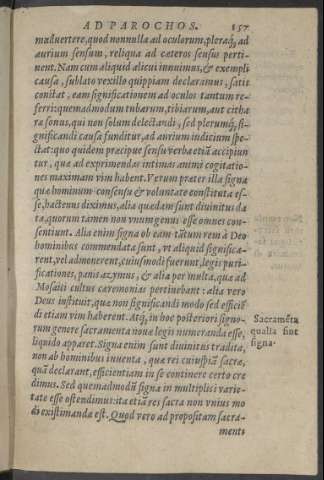 AD PAROCHOS. 157
maduertere, quod nonnulla ad oculorum, pleraq́; ad
aurium sensum, reliqua ad cæteros sensus perti-
nent. Nam cum aliquid alicui innuimus, & exempli
causa, sublato vexillo quippiam declaramus, satit
constat, eam significationem ad oculos tantum re-
ferri: quemadmodum tubarum, tibiarum, aut cithæ
ræ sonus, qui non solum delectandi, sed plerumq́; si-
gnificandi causa funditur, ad aurium iudicium spe-
ctat: quo quidem præcipue sensu verba etiā accipiun
tur, quæ ad exprimendas intimas animi cogitatio-
nes maximam vim habent. Verum præter illa signa
quæ hominum consensu & voluntate constituta es-
se, hactenus diximus, alia quædam sunt diuinitus da
ta, quorum tamen non vnum genus esse omnes con-
sentiunt. Alia enim signa ob eam tātum rem à Deo
hominibus commendata sunt, vt aliquid significa-
rent, vel admonerent, cuiusmodi fuerunt, legis puri-
ficationes, panis azymus, & alia per multa, quæ ad
Mosaici cultus cæremonias pertinebant: alia vero
Deus instituit, quæ non significandi modo sed efficiē
di etiam vim haberent. Atq́; in hoc posteriori signo-
rum genere sacramenta nouæ legis numeranda esse,
liquido apparet. Signa enim sunt diuinitus tradita,
non ab hominibus inuenta, quæ rei cuiuspiā sacræ,
quā declarant, efficientiam in se continere certo cre
dimus. Sed quemadmodū signa in multiplici varie-
tate esse ostendimus: ita etiā res sacra non vnius mo
di existimanda est. Quod vero ad propositam sacra-
menti
Sacramēta
qualia sint
signa.